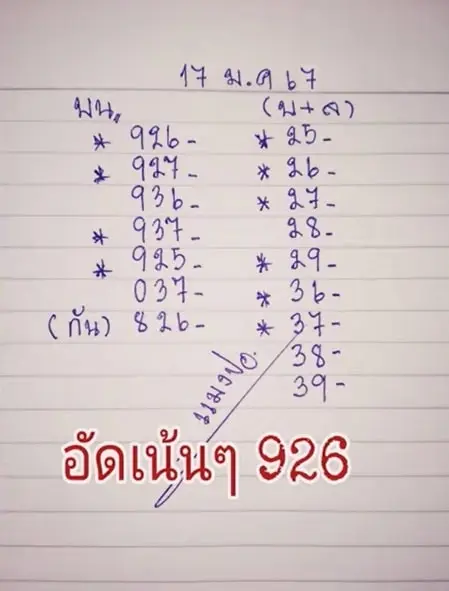 17 ม.ค 67
บน. (บ+ล)
* 926- * 25-
* 927- * 26-
936- * 27-
* 937- 28-
* 925- * 29-
037- * 36-
(กัน) 826- * 37-
38-
39-
แมงปอ.
อัดเน้นๆ 926